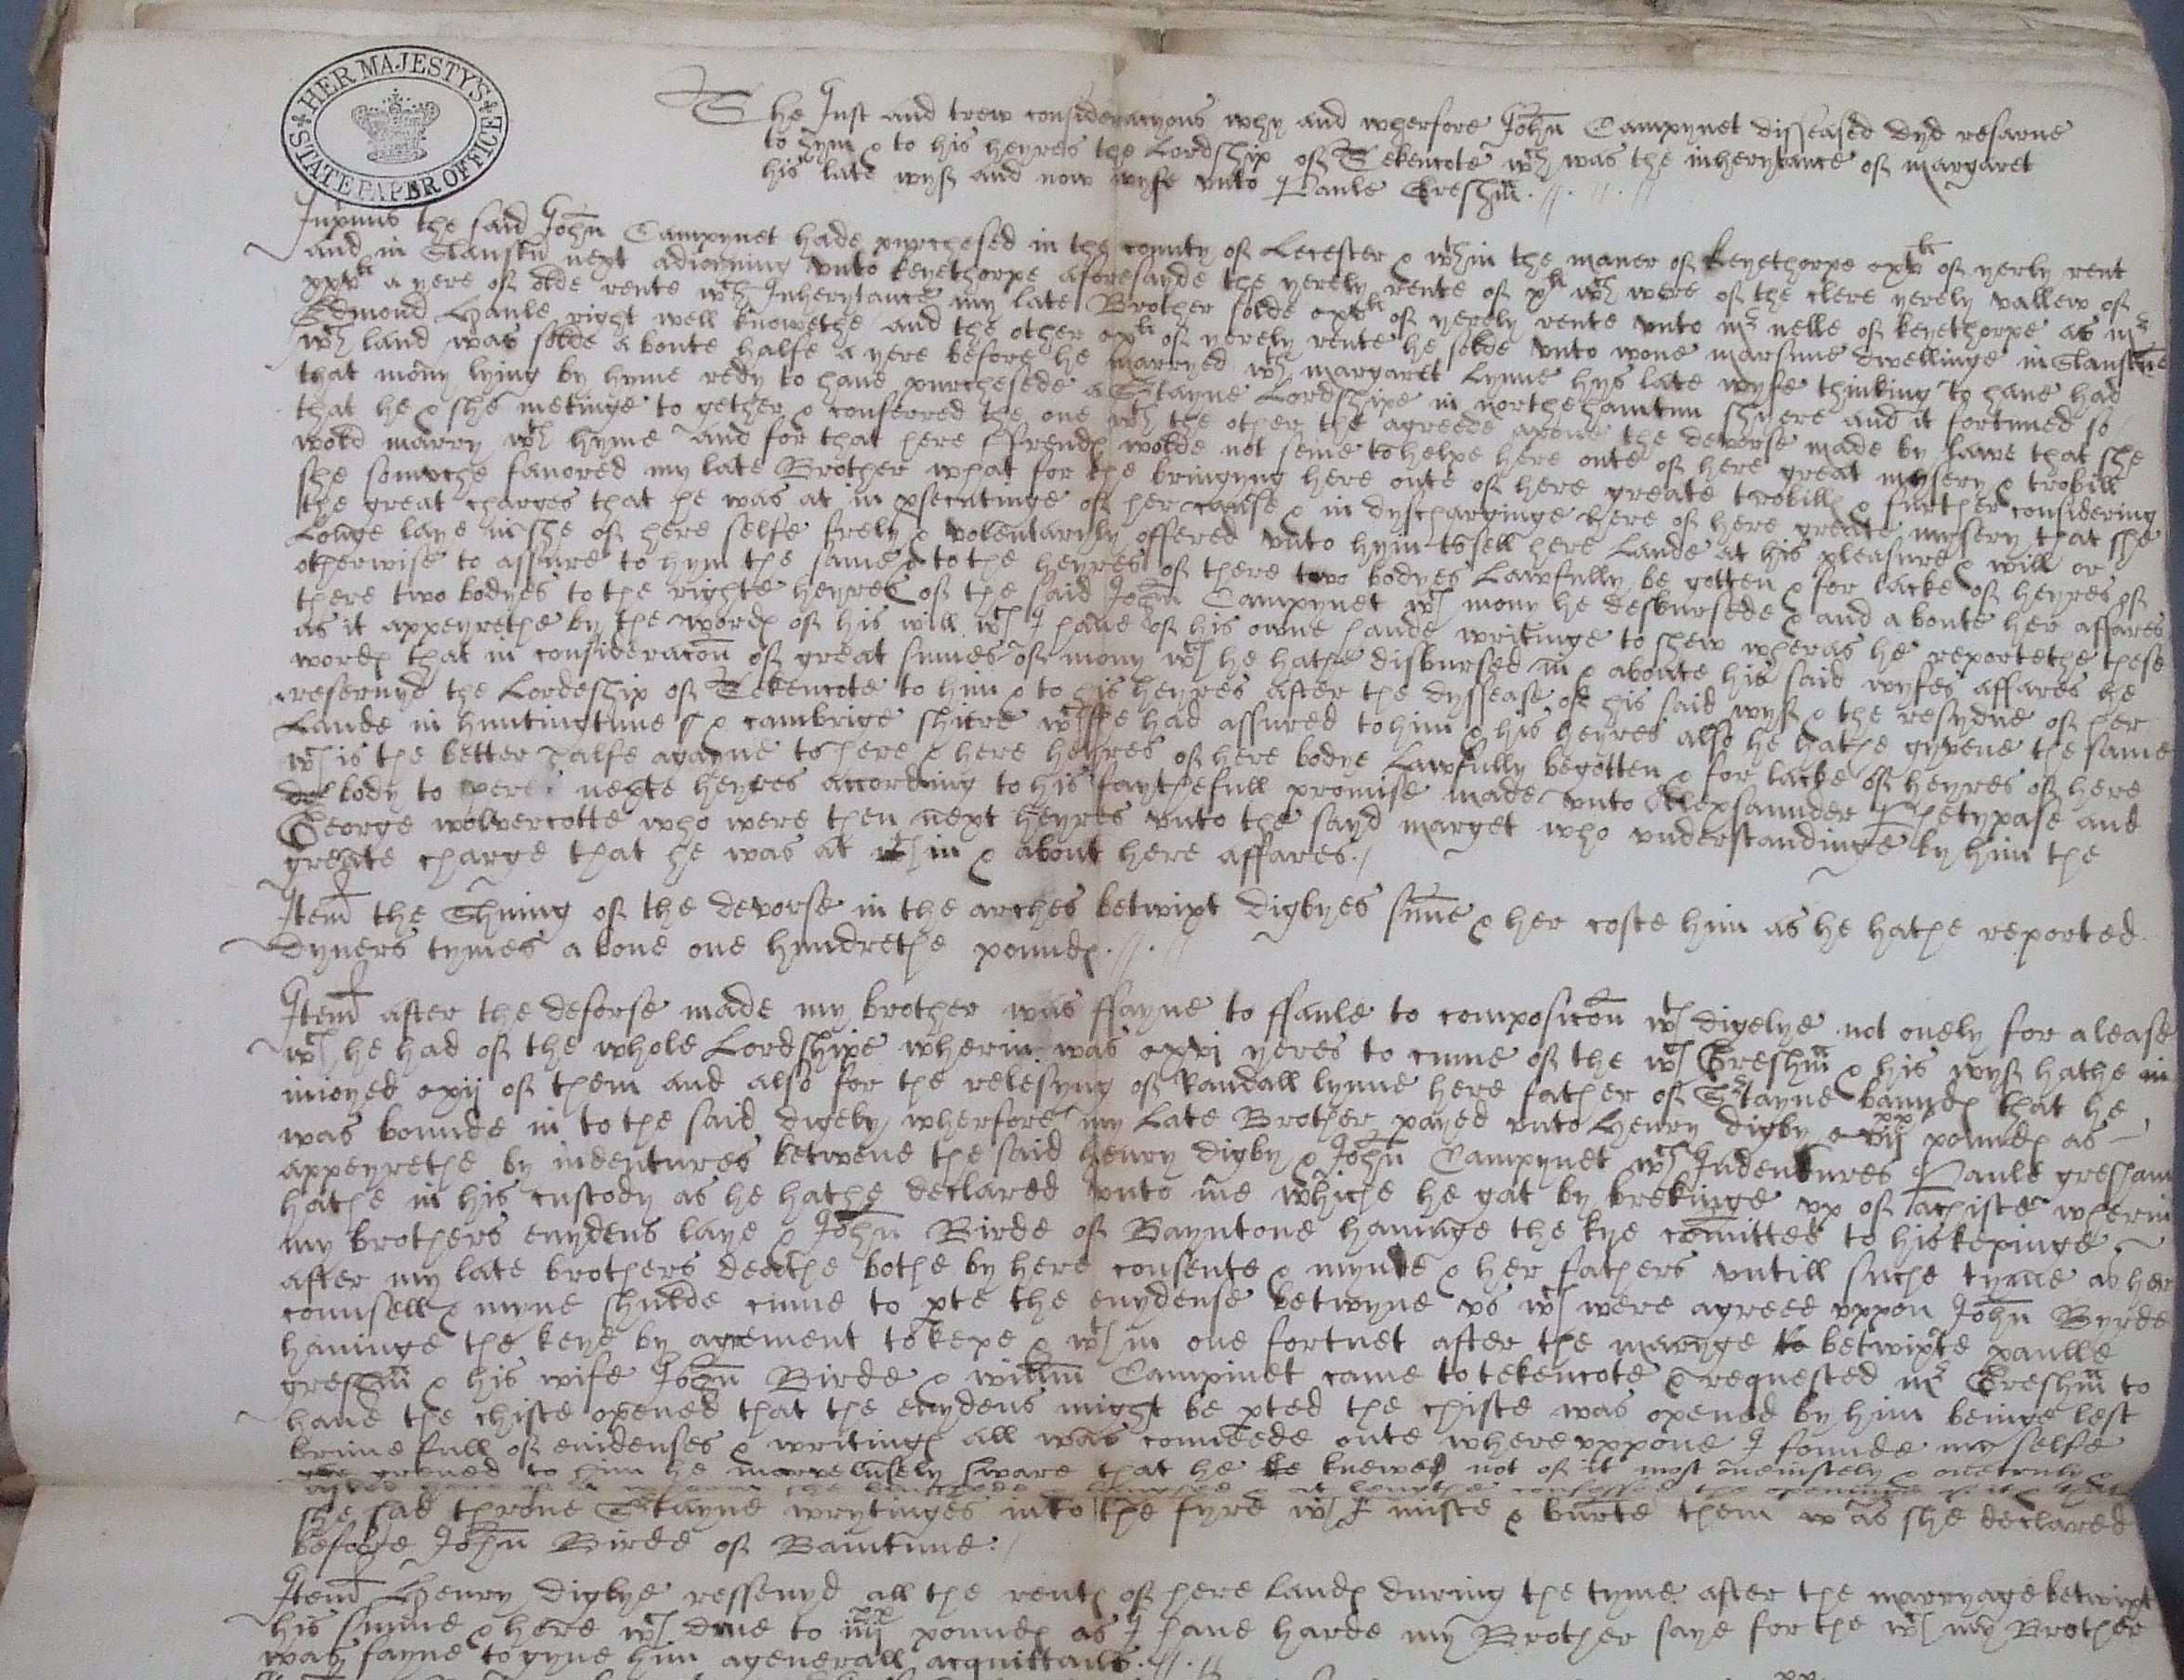 HER MAJESTY'S
STATE PAPER OFFICE
The Just and trew consideracyons why and wherfore John Campynet disseased dyd resarue
to hym & to his heyres the Lordship of Tekencote wch was the inherytance of margaret
his late wyf and now wyfe vnto Paule Gresham
Inprimis the said John Campynet hade purchesed in the county of Lecester & wthin the maner of keyethorpe xvli of yerly rent
and in Slanstun next adioyning vnto keyethorpe aforesayde the yerely rente of xli wch were of the clere yerely vallew of
xxvli a yere of olde rente wch Inherytance my late Brother solde xvli of yerely rente vnto mr nelle of keyethorpe as mr
Edmond Haule right well knowethe and the other xli of yerely rente he solde vnto wone marsune dwellinge in Slanstune
wch land was solde a boute halfe a yere before he marryed wth margaret Lynne hys late wyfe thinking to haue had
that mony lying by hyme redy to haue purchesede a Stayne Lordshipe in northehamtun shyere and it fortuned so
that he & she metinge to gether & conferred the one wth the other the agreede apone the devorse made by lawe that she
wold marry wth hyme and for that here ffrendes wolde not seme to helpe here oute of here great mysery & trobill
she somvche favored my late Brother what for the bringyng here oute of here greate trobill & further considering
the great charges that he was at in psecutinge of her cause & in dyscharginge here of here greate mysery that she
Longe laye in she of here selfe frely & volentaryly offered vnto hym to sell here Lande at his pleasure & will or
otherwise to assure to hym the same & to the heyres of there two bodyes Lawfully be gotten & for lacke of heyres of
there two bodyes to the righte heyres of the said John Campynet wch mony he desbursede & and a boute her affares
as it appeyrethe by the wordes of his will wch I haue of his owne hande writinge to shew wheras he reportethe these
wordes that in consideracon of great sumes of mony wch he hathe disbursed in & aboute his said wyfes affares he
reseruyd the Lordeship of Tekencote to him & to his heyres after the dyssease of his said wyf & the resydue of her
Lande in huntingtune & cambrige shiere wch she had assured to him & his heyres also he hathe gyvene the same
wch is the better halfe agayne to here & here heyres of here bodye Lawfully begotten & for lacke of heyres of here
body to here nexte heyres according to his faythefull promise made vnto Alexsaunder Phetypase and
George wolvercotte who were then next heyres vnto the sayd marget who vnderstandinge by him the
greate charge that he was at wth in & about here affares
Item the Shuing of the devorse in the arches betwixt digbyes sune & her coste him as he hathe reported
dyuers tymes a boue one hundrethe poundes
Item after the deforse made my brother was ffayne to ffaule to composicon wth digelye not onely for a lease
wch he had of the whole Lordshipe wherin was xvi yeres to cume of the wch Gresham & his wyf hathe in
inioyed xij of them and also for the relesyng of Randall lynne here father of Stayne bandes that he
was bounde in to the said digeby wherfore my late Brother payed vnto Henry digby poundes as
appeyrethe by indentures betwene the said henry digby & John Campynet wch Indentures Paule gresham
hathe in his custody as he hathe declared vnto me whiche he gat by brekinge vp of a chiste wherin
my brothers euydens laye & John Birde of Bayntone hauinge the kye comitted to his kepinge
after my late brothers deathe bothe by here consente & mynde & her fathers vntill suche tyme as her
counsell & myne shulde cume to pte the euydense betwyne vs wch were agreed vppon John Byrde
hauinge the keye by agrement to kepe & wth in one fortnet after the maryge betwixte paulle
gresham & his wife John Birde & willm Campinet came to tekencote & requested mr Gresham to
haue the chiste opened that the euydens might be pted the chiste was opened by him beinge lest
brime full of euidenses & writinges all was conueede oute where vppone I founde my selfe
greued to him he marvelusely sware that he knewe not of it most
she had throne Stayne wrytinges into the fyre wch I miste & burte them as she declared
before John Birde of Baintune
Item Henry digbye resseuyd all the rentes of here landes during the tyme after the marryage betwixt
his sunne & here wch dme to iiijxx poundes as I haue harde my Brother saye for the wch my Brother
was fayne to gyue him a generall acquittans